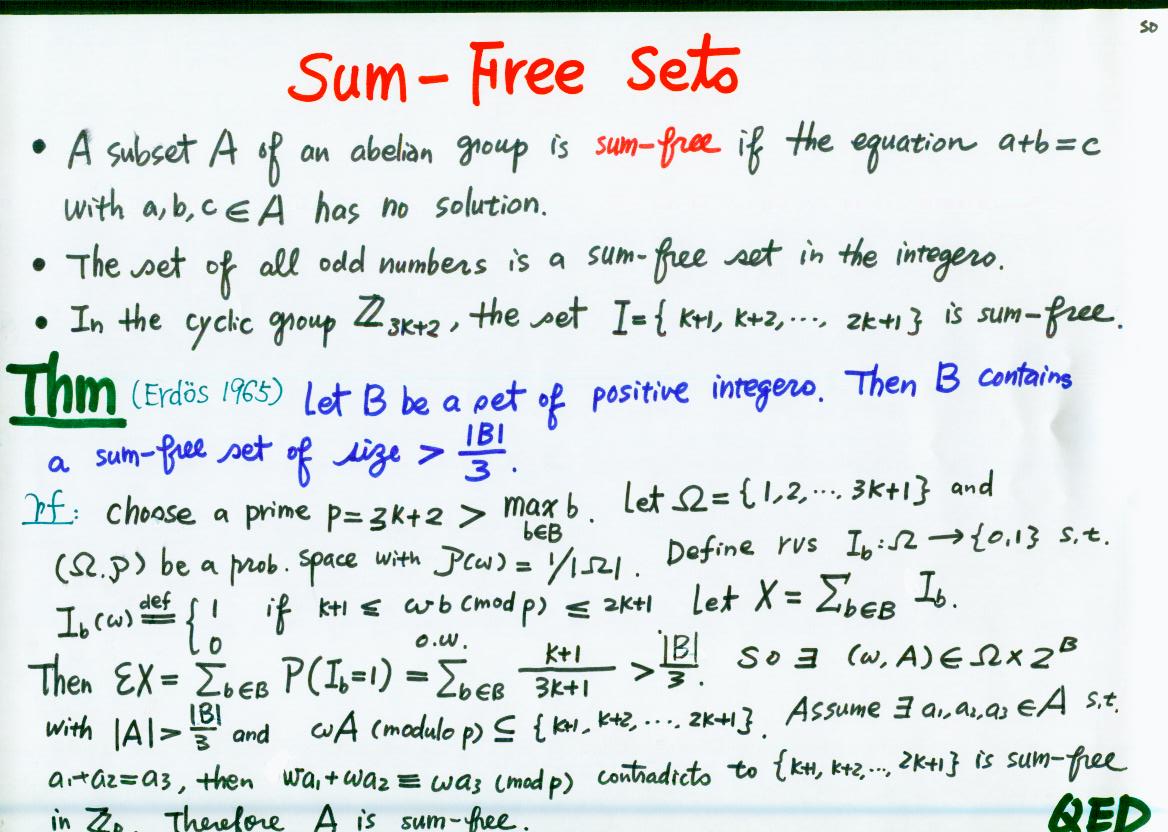 50
Sum-Free Sets
• A subset A of an abelian group is sum-free if the equation a+b=c
with a,b,c ∈ A has no solution.
• The set of all odd numbers is a sum-free set in the integers.
• In the cyclic group ℤ₃ₖ₊₂, the set I={k+1, k+2,..., 2k+1} is sum-free.
Thm (Erdös 1965) Let B be a set of positive integers. Then B contains
a sum-free set of size > |B|/3.
pf: choose a prime p=3k+2 > max_{b∈B} b. Let Ω={1,2,..., 3k+1} and
(Ω.P) be a prob. space with P(ω) = 1/|Ω|. Define rvs I_b:Ω→{0,1} s.t.
I_b(ω) ≝ { 1 if k+1 ≤ ωb (mod p) ≤ 2k+1 Let X = Σ_{b∈B} I_b.
0 o.w.
Then EX = Σ_{b∈B} P(I_b=1) = Σ_{b∈B} (k+1)/(3k+1) > |B|/3. So ∃ (ω, A) ∈ Ω×2^B
with |A|> |B|/3 and ωA (modulo p) ⊆ {k+1, k+2,..., 2k+1}. Assume ∃ a₁,a₂,a₃ ∈ A s.t.
a₁+a₂=a₃, then ωa₁+ωa₂ ≡ ωa₃ (mod p) contradicts to {k+1, k+2,..., 2k+1} is sum-free
in ℤₚ. Therefore A is sum-free. QED